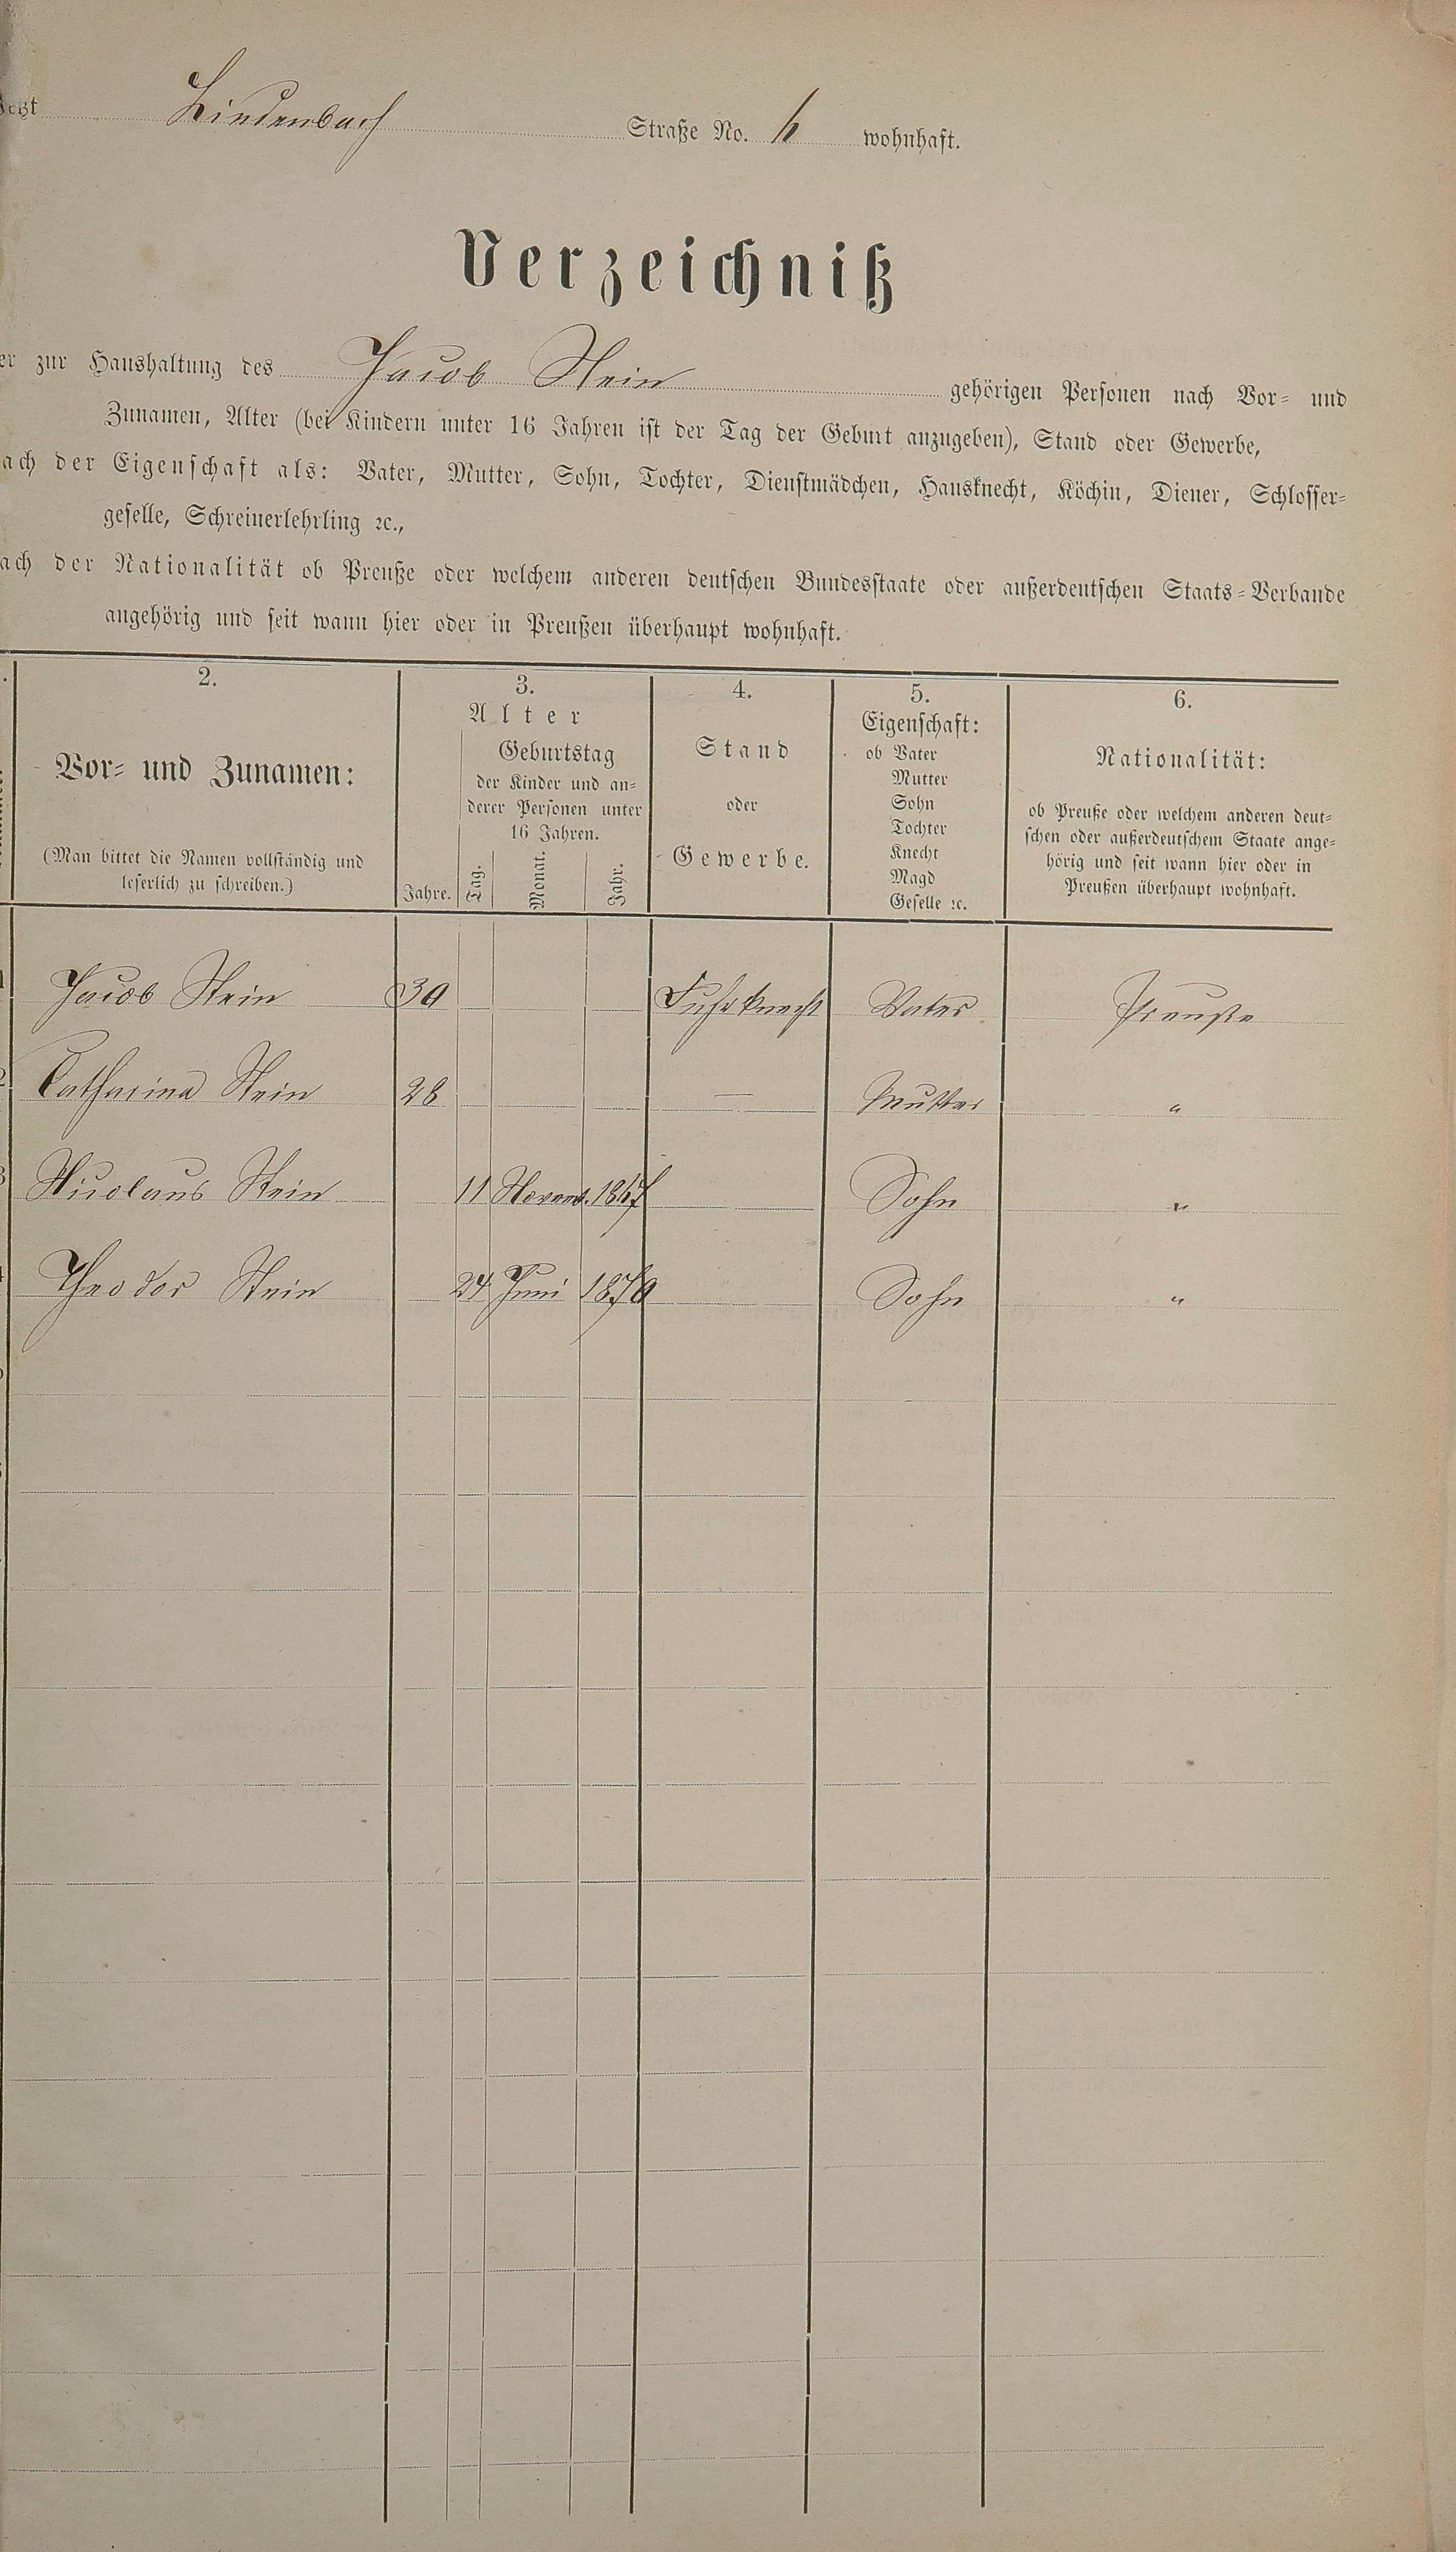 Jetzt Lindenbach Straße No. 6 wohnhaft.
Verzeichniß
er zur Haushaltung des Jacob Stein gehörigen Personen nach Vor- und
Zunamen, Alter (bei Kindern unter 16 Jahren ist der Tag der Geburt anzugeben), Stand oder Gewerbe,
ach der Eigenschaft als: Vater, Mutter, Sohn, Tochter, Dienstmädchen, Hausknecht, Köchin, Diener, Schlosser-
geselle, Schreinerlehrling ꝛc.,
ach der Nationalität ob Preuße oder welchem anderen deutschen Bundesstaate oder außerdeutschen Staats-Verbande
angehörig und seit wann hier oder in Preußen überhaupt wohnhaft.
2.
Vor- und Zunamen:
(Man bittet die Namen vollständig und
leserlich zu schreiben.)
3.
Alter
Geburtstag
der Kinder und an-
derer Personen unter
16 Jahren.
Jahre. Tag. Monat. Jahr.
4.
Stand
oder
Gewerbe.
5.
Eigenschaft:
ob Vater
Mutter
Sohn
Tochter
Knecht
Magd
Geselle ꝛc.
6.
Nationalität:
ob Preuße oder welchem anderen deut-
schen oder außerdeutschem Staate ange-
hörig und seit wann hier oder in
Preußen überhaupt wohnhaft.
1 Jacob Stein 30 Fuhrknecht Vater Preuße
2 Catharina Stein 28 — Mutter "
3 Nicolaus Stein 11 Novemb. 1867 Sohn "
4 Theodor Stein 24 Juni 1870 Sohn "